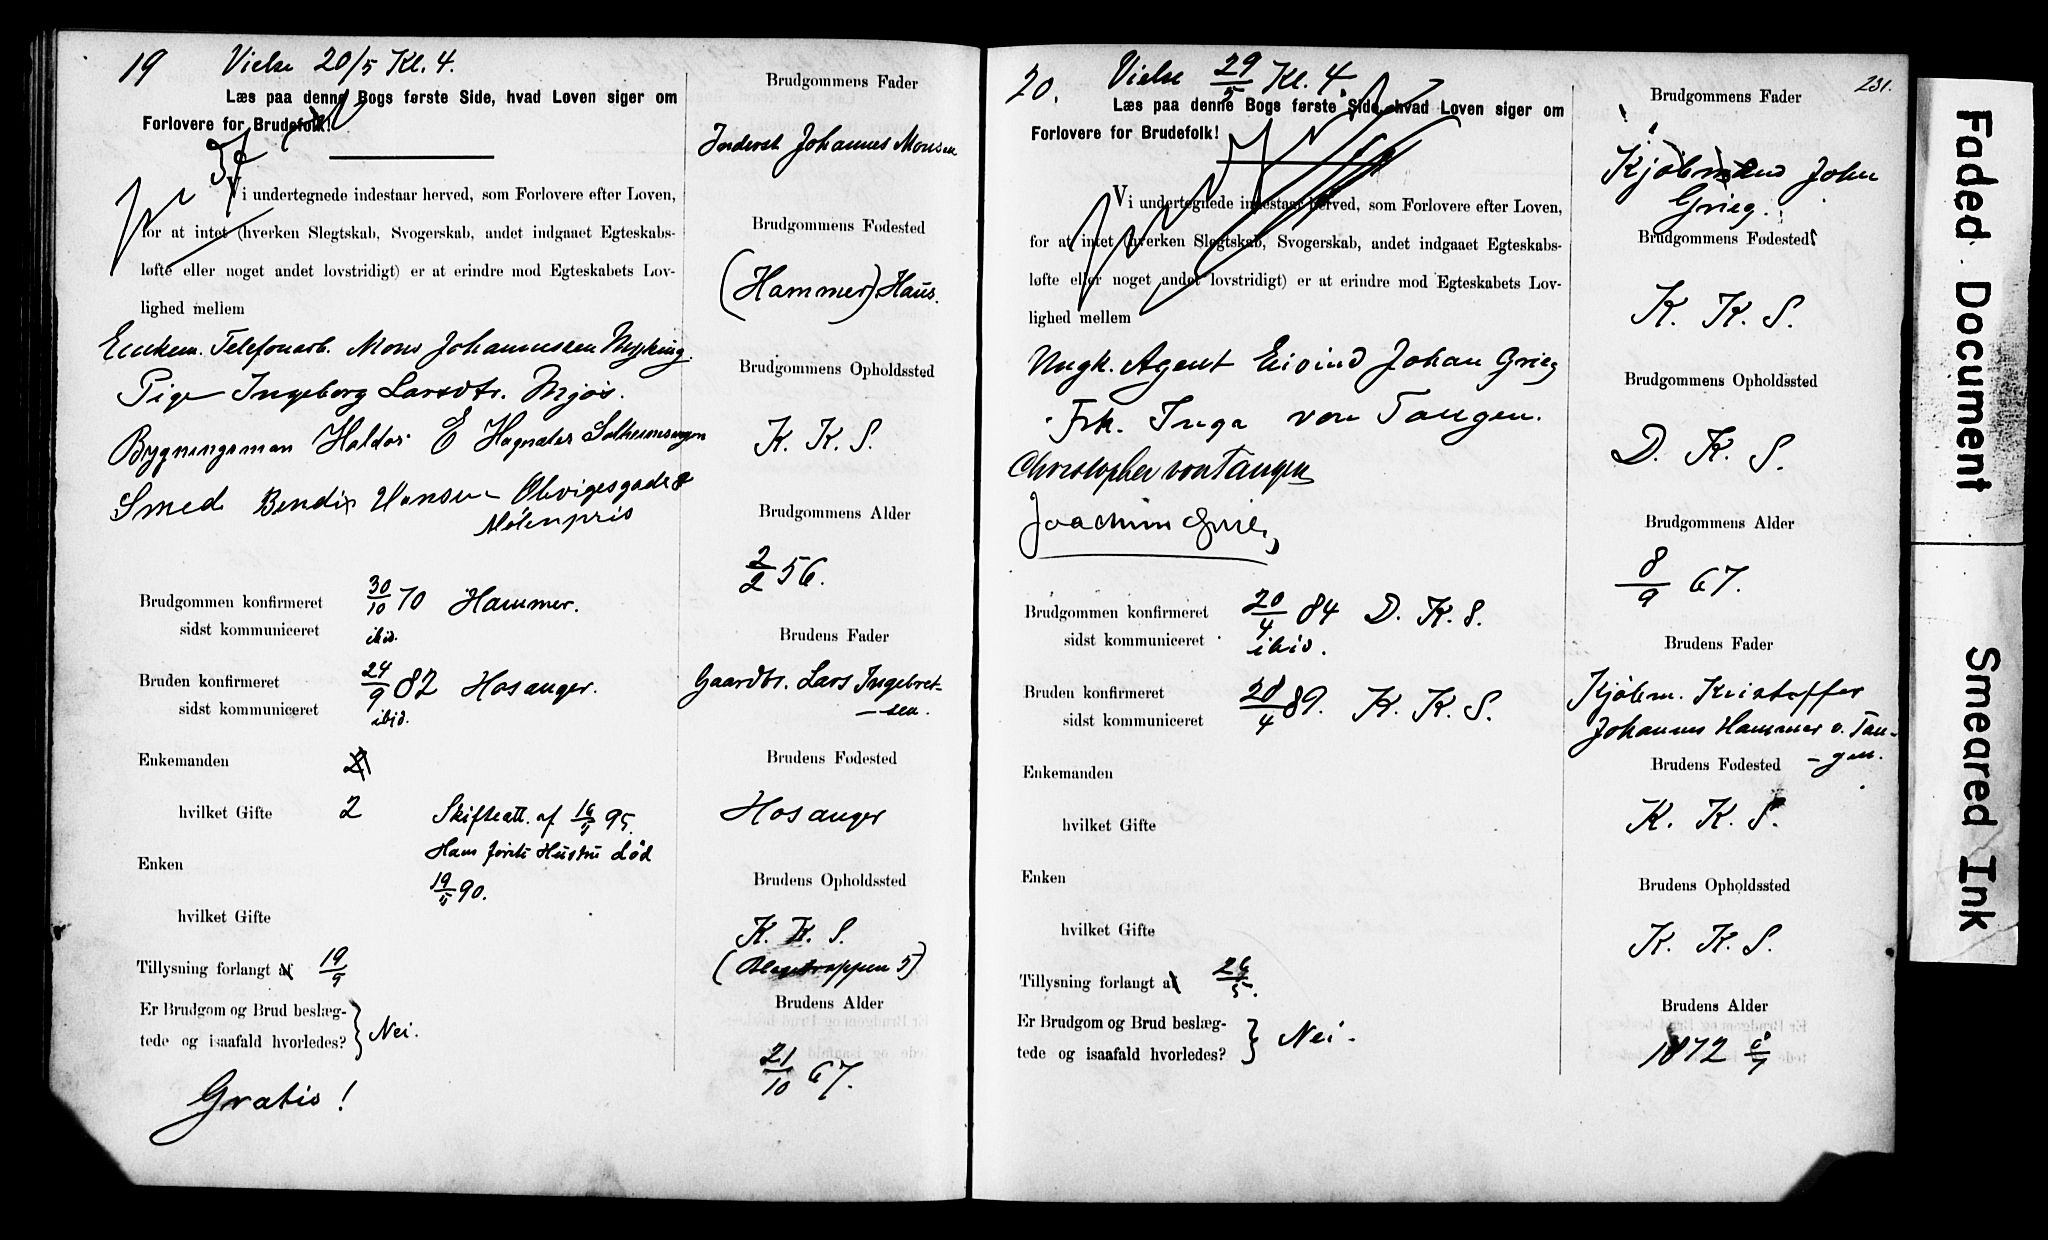 19 Vielse 20/5 Kl. 4.
Læs paa denne Bogs første Side, hvad Loven siger om
Forlovere for Brudefolk!
Vi undertegnede indestaar herved, som Forlovere efter Loven,
for at intet (hverken Slegtskab, Svogerskab, andet indgaaet Egteskabs-
løfte eller noget andet lovstridigt) er at erindre mod Egteskabets Lov-
lighed mellem
Enkem. Telefonarb. Mons Johannessen
Pige Ingeborg Larsdtr. Mjøs.
Bygningsman Haldor E
Smed Bendix Hansen
Mølenpris
Brudgommen konfirmeret 30/10 70 Hammer.
sidst kommuniceret ibid.
Bruden konfirmeret 24/9 82 Hosanger.
sidst kommuniceret ibid.
Enkemanden
hvilket Gifte 2 Skifteatt. af 16/5 95.
Hans første Hustru død
Enken
19/5 90.
hvilket Gifte
Tillysning forlangt af 19/9
Er Brudgom og Brud beslæg-
tede og isaafald hvorledes? Nei.
Gratis!
Brudgommens Fader
Inderst Johannes Monsen
Brudgommens Fødested
(Hammer) Haus.
Brudgommens Opholdssted
K. K. S.
Brudgommens Alder
2/2 56.
Brudens Fader
Gaardbr. Lars Ingebret-
-sen.
Brudens Fødested
Hosanger
Brudens Opholdssted
K. K. S.
Brudens Alder
21/10 67.
20. Vielse 29/5 Kl. 4.
Læs paa denne Bogs første Side, hvad Loven siger om
Forlovere for Brudefolk!
Vi undertegnede indestaar herved, som Forlovere efter Loven,
for at intet (hverken Slegtskab, Svogerskab, andet indgaaet Egteskabs-
løfte eller noget andet lovstridigt) er at erindre mod Egteskabets Lov-
lighed mellem
Ungk. Agent Eivind Johan Grieg
Frk. Inga von Tangen.
Christopher von Tangen
Joachim Grieg
Brudgommen konfirmeret 20/4 84 D. K. S.
sidst kommuniceret ibid.
Bruden konfirmeret 28/4 89. K. K. S.
sidst kommuniceret
Enkemanden
hvilket Gifte
Enken
hvilket Gifte
Tillysning forlangt af 26/5.
Er Brudgom og Brud beslæg-
tede og isaafald hvorledes? Nei.
231.
Brudgommens Fader
Kjøbmand John
Grieg.
Brudgommens Fødested
K. K. S.
Brudgommens Opholdssted
D. K. S.
Brudgommens Alder
8/9 67.
Brudens Fader
Kjøbm. Kristoffer
Johannes Hammer v. Tan-
-gen.
Brudens Fødested
K. K. S.
Brudens Opholdssted
K. K. S.
Brudens Alder
1872
Faded Document
Smeared Ink